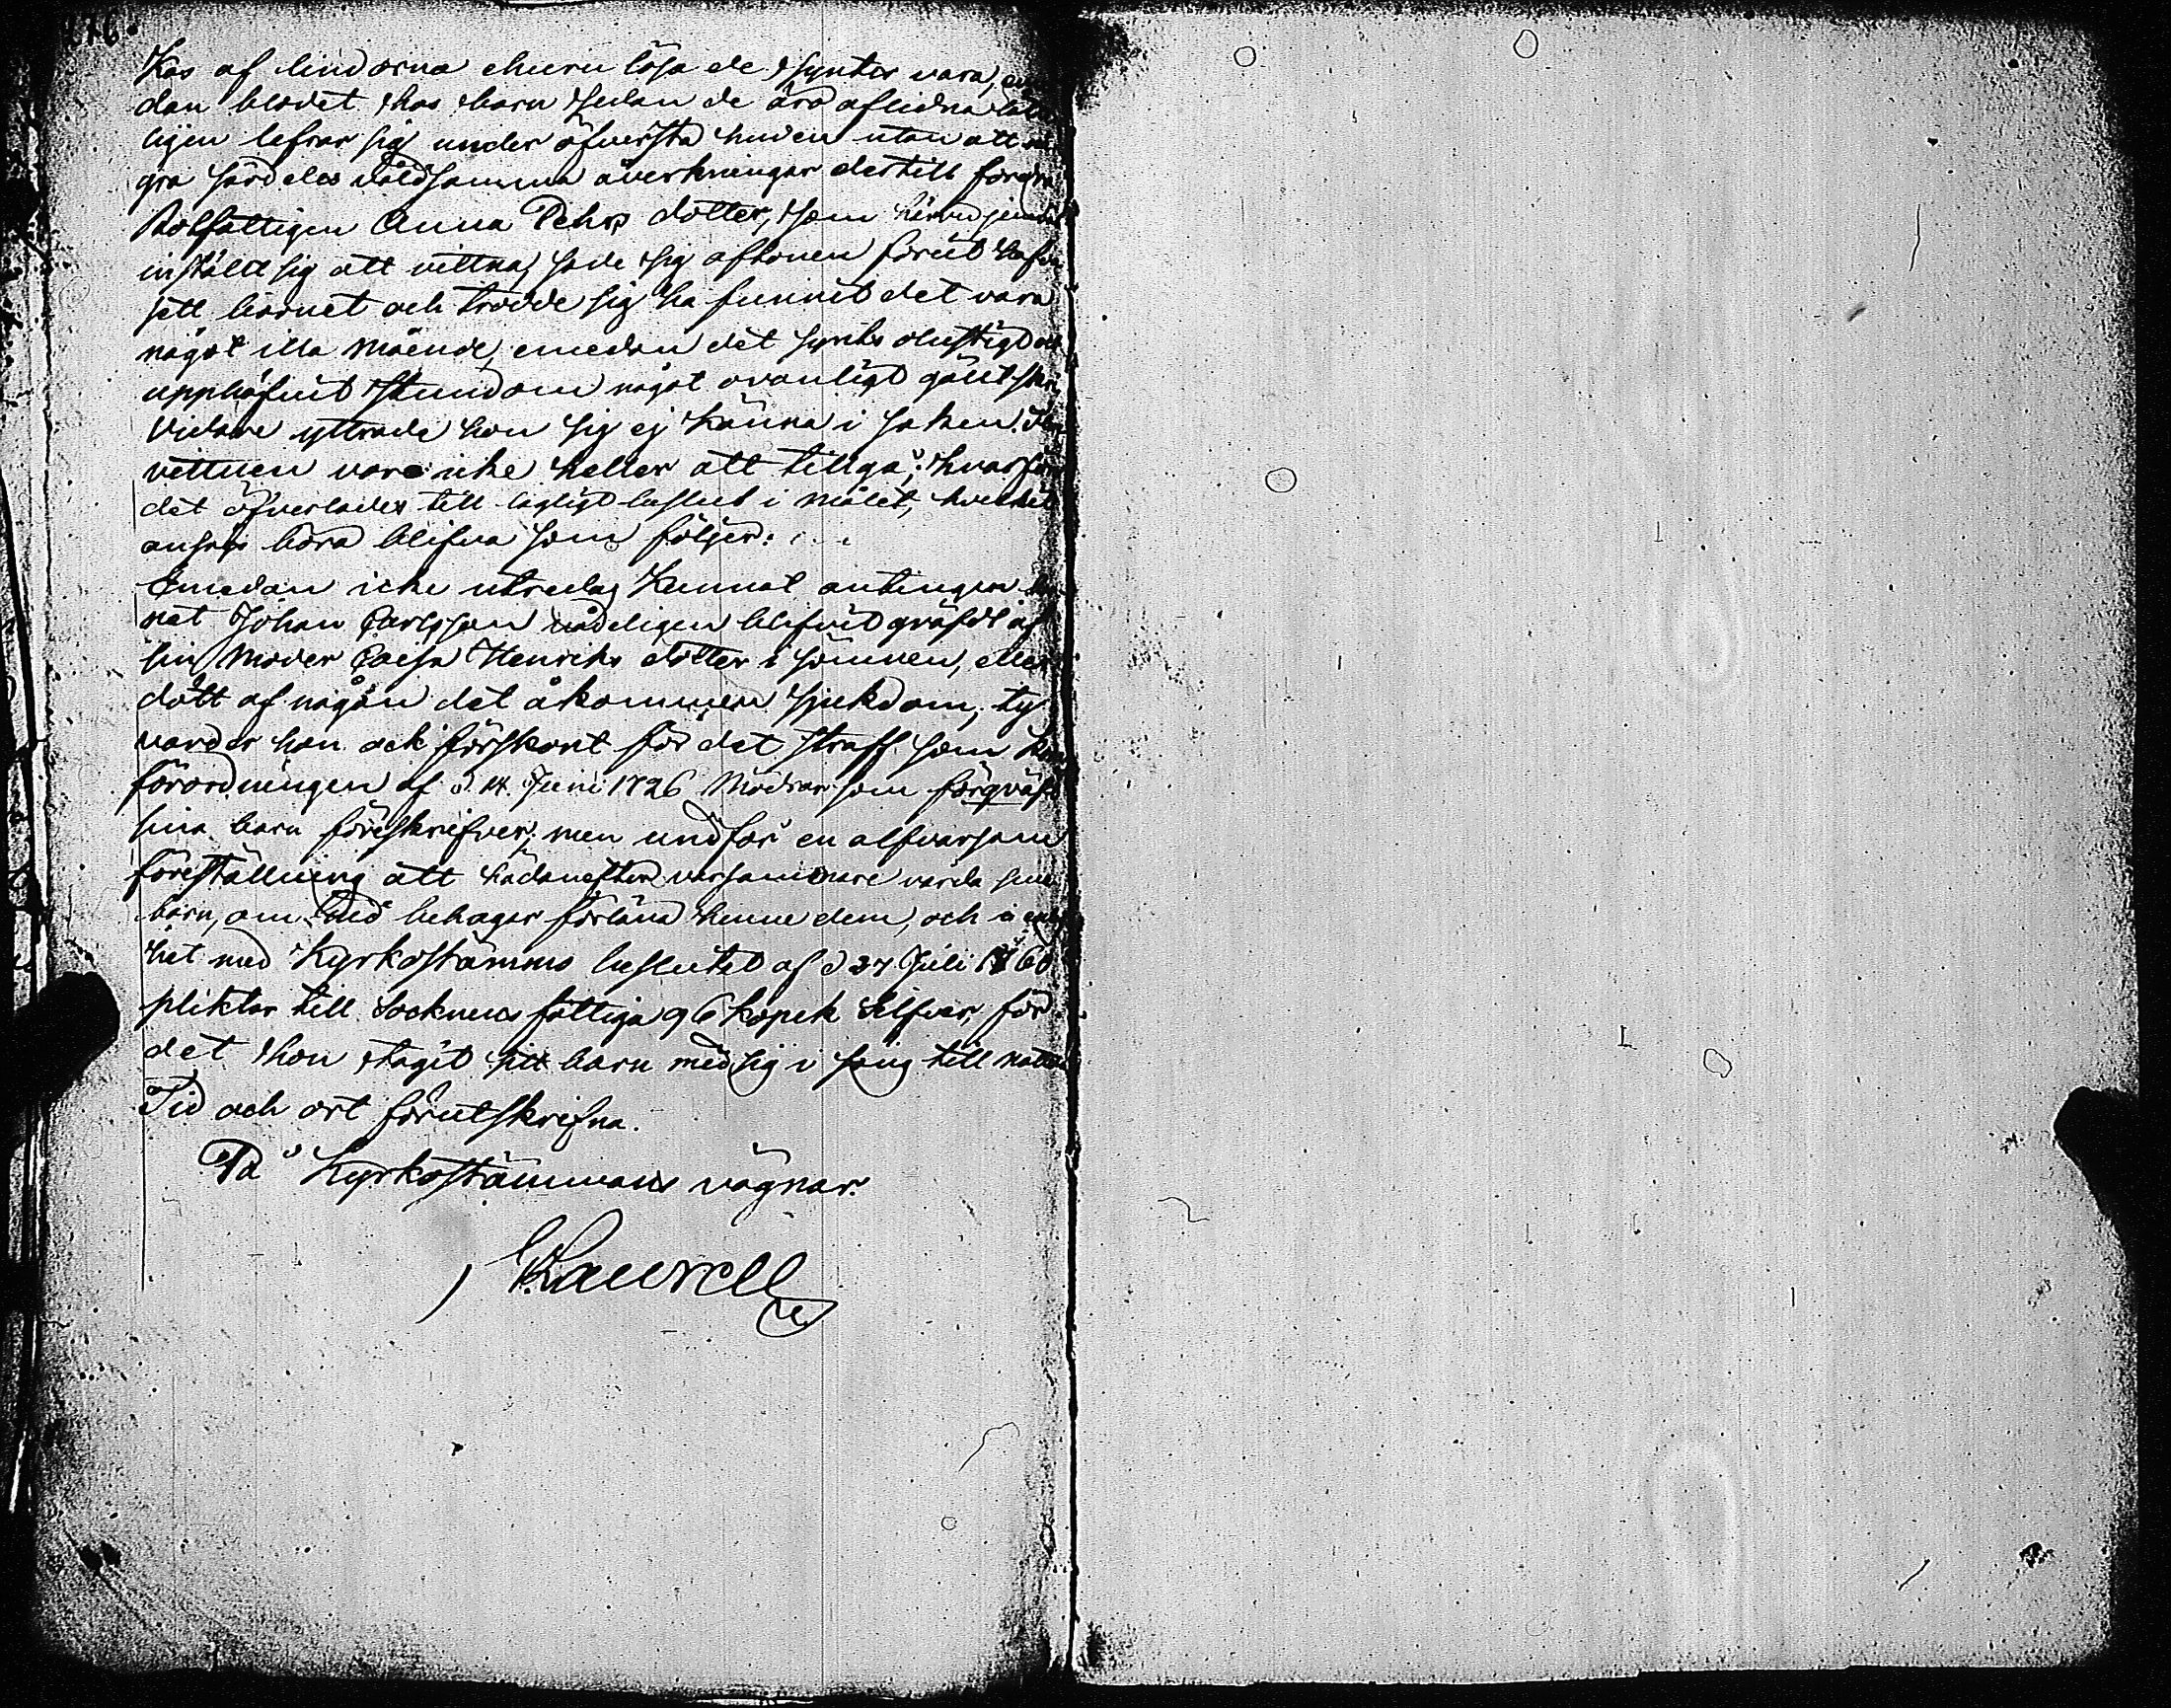 276.
kas af lindorna ehuru lösa de syntes vara,
dan blodet hos barn sedan de äro aflidna
ligen lefrar sig under öfversta huden utan att
gra särdeles våldsamma åverkningar dertill
Rotfattigen Anna Pehrs dotter, som härvid
instält sig att vittna, sade sig aftonen förut
sett barnet och trodde sig ha funnit det vara
något illa mående, emedan det synts olustigt
upphäfvit stundom något ovanligt gällt
Vidare yttrade hon sig ej känna i saken.
vittnen voro icke heller att tillgå; hvarför
det öfverlades till lagligt beslut i målet, hvilket
ansågs böra blifva som följer:
Emedan icke utredas kunnat antingen
net Johan Carlsson vådeligen blifvit qväfdt af
sin Moder Caisa Henriks dotter i sömnen, eller
dött af någon det åkommen sjukdom, ty
varder hon ock förskont för det straff som
förordningen af d. 14. Juni 1726 Mödrar som förqväft
sina barn föreskrifver; men undfår en alfvarsam
föreställning att hädanefter varsammare vårda sina
barn, om Gud behagar förläna henne dem, och i
het med Kyrkostämmo beslutet af d 27 Juli 1760
pliktar till Socknens fattiga 96 kopek Silfver, för
det hon tagit sitt barn med sig i säng till
Tid och ort förutskrifna.
På Kyrkostämmans vägnar.
Laurell